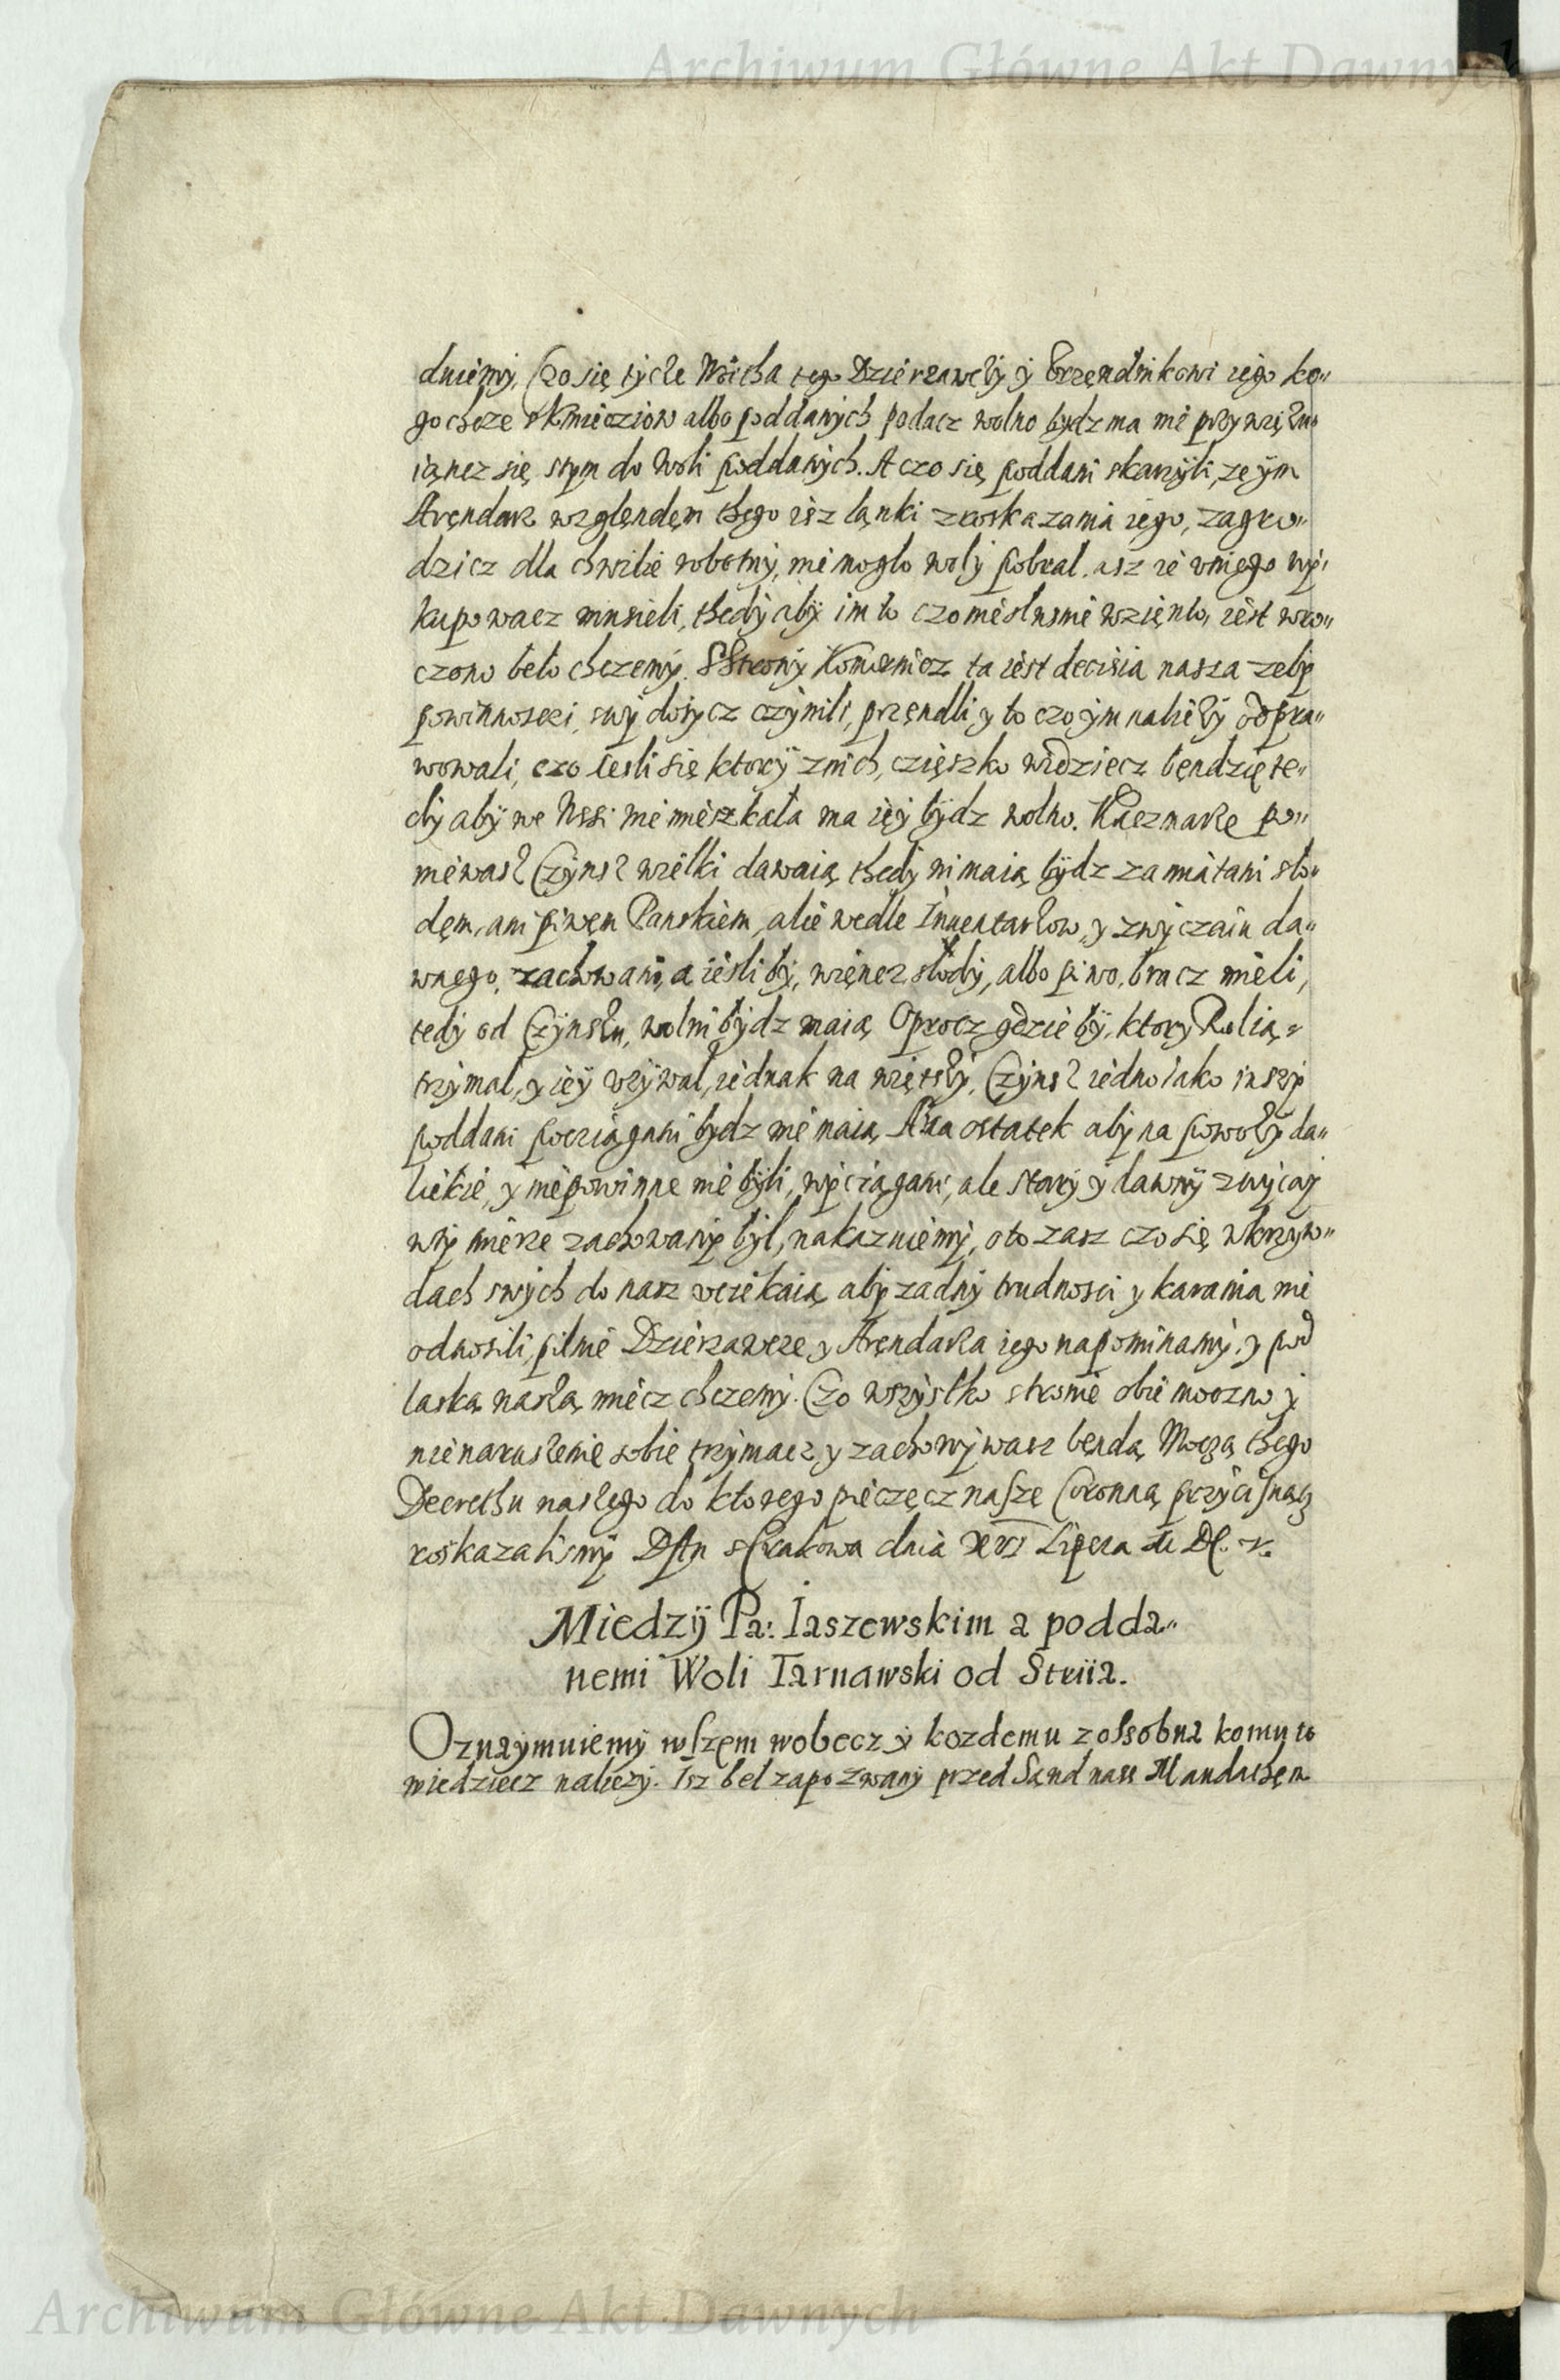 Archiwum Główne Akt Dawnych
duiemy, Czo się tycże Woitha tego Dzierzawcży y Vrzęndnikowi iego ko„
go chcze s Kmiecziow albo poddanych podacz wolno bydz ma nie przywięzu„
iąncz się stym do Woli poddanych. A czo się poddani skarzyli, ze ym
Aręndarz wzglęndęm thęgo isz łąnki z roskazania iego, zagro„
dzicz dla chwilie robotny, nie mogło woly pobral, asz ie v niego wy„
kupowacz musieli, thedy aby im to czo nieslusnie wzięnto, iest wro„
czono beło chczemy. S Strony Komornicz ta iest decisia nasza zeby
powinnosczi swy dosycz czynili, przęndli y to czo ym nalieży odpra„
wowali, czo iesli się ktory z nich, czięszko widziecz bęndzię te„
dy aby we Wssi nie mieszkała ma iey bydz wolno. Kaczmarze po„
niewasz Czynsz wielki dawaią, thedy ni maią bydz zamiatani sło„
dęm, ani piwęm Panskiem, alie wedle Inuentarzow, y zwyczaiu da„
wnego, zachowani, a iesliby, więncz słody, albo piwo, bracz mieli,
tedy od Czynszu, wolni bydz maią Oprocz gdzieby, ktory Rolią„
trzymal, y iey vzywal, iednak na więtszy, Czynsz iedno iako inszy
poddani pocziągani bydz nie maią. Ana ostatek aby na powozy da„
liekie, y niepowinne nie byli, wyciągani, ale stary y dawny zwyczay
wty mierze zachowany był, nakazuiemy, oto zasz czo się wkrzyw„
dach swych do nasz vciekaią, aby zadny trudnosci y karania nie
odnosili, pilnie Dzierzawcze, y Aręndarza iego napominamy, y pod
łaską naszą miecz chczemy. Czo wszystko stronie obie moczno y
nienaruszenie sobie trzymacz, y zachowywacz bęndą, Moczą thego
Decrethu naszego do ktorego pieczęcz nasze Coronną przycisnącz
roskazalismy Dan s Crakowa dnia XVI Lipcza
Miedzÿ Pa: Iaszewskim a podda„
nemi Woli Tarnawski od Striia.
Oznaymuiemy wszęm wobecz y kozdemu zossobna komu to
wiedziecz naliezy. Isz beł zapozwany przed Sąnd nasz Mandathęm
Archiwum Główne Akt Dawnych